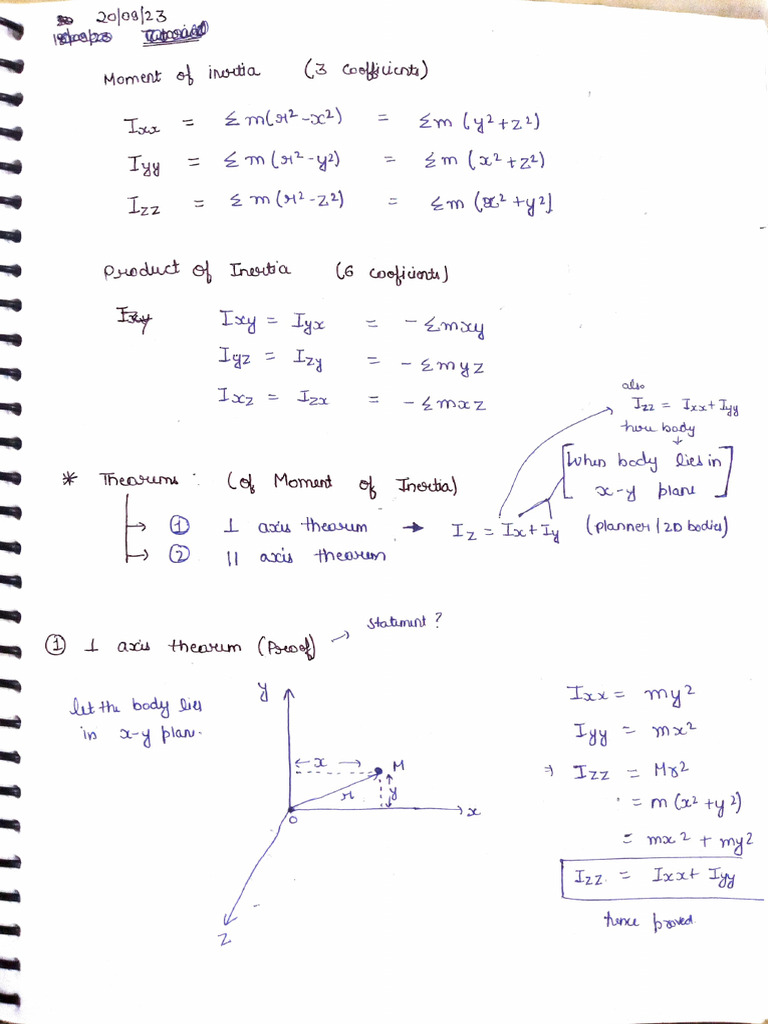 20/09/23
Moment of inertia (3 coefficients)
Ixx = Σm(r²-x²) = Σm (y²+z²)
Iyy = Σm (r²-y²) = Σm (x²+z²)
Izz = Σm (r²-z²) = Σm (x²+y²]
Product of Inertia (6 cooficients)
Ixy = Iyx = -Σmxy
Iyz = Izy = -Σmyz
Ixz = Izx = -Σmxz
also
Izz = Ixx+Iyy
here body
[When body lies in
x-y plane]
* Theorums: (of Moment of Inertia)
→ ① ⊥ axis theorum → Iz = Ix+Iy (planner/2D bodies)
→ ② || axis theorum
① ⊥ axis theorum (Proof) → Statement?
let the body lies
in x-y plan.
y
← x →
M
r
y
O
x
z
Ixx = my²
Iyy = mx²
⇒ Izz = Mr²
= m(x²+y²)
= mx² + my²
Izz = Ixx + Iyy
hence proved